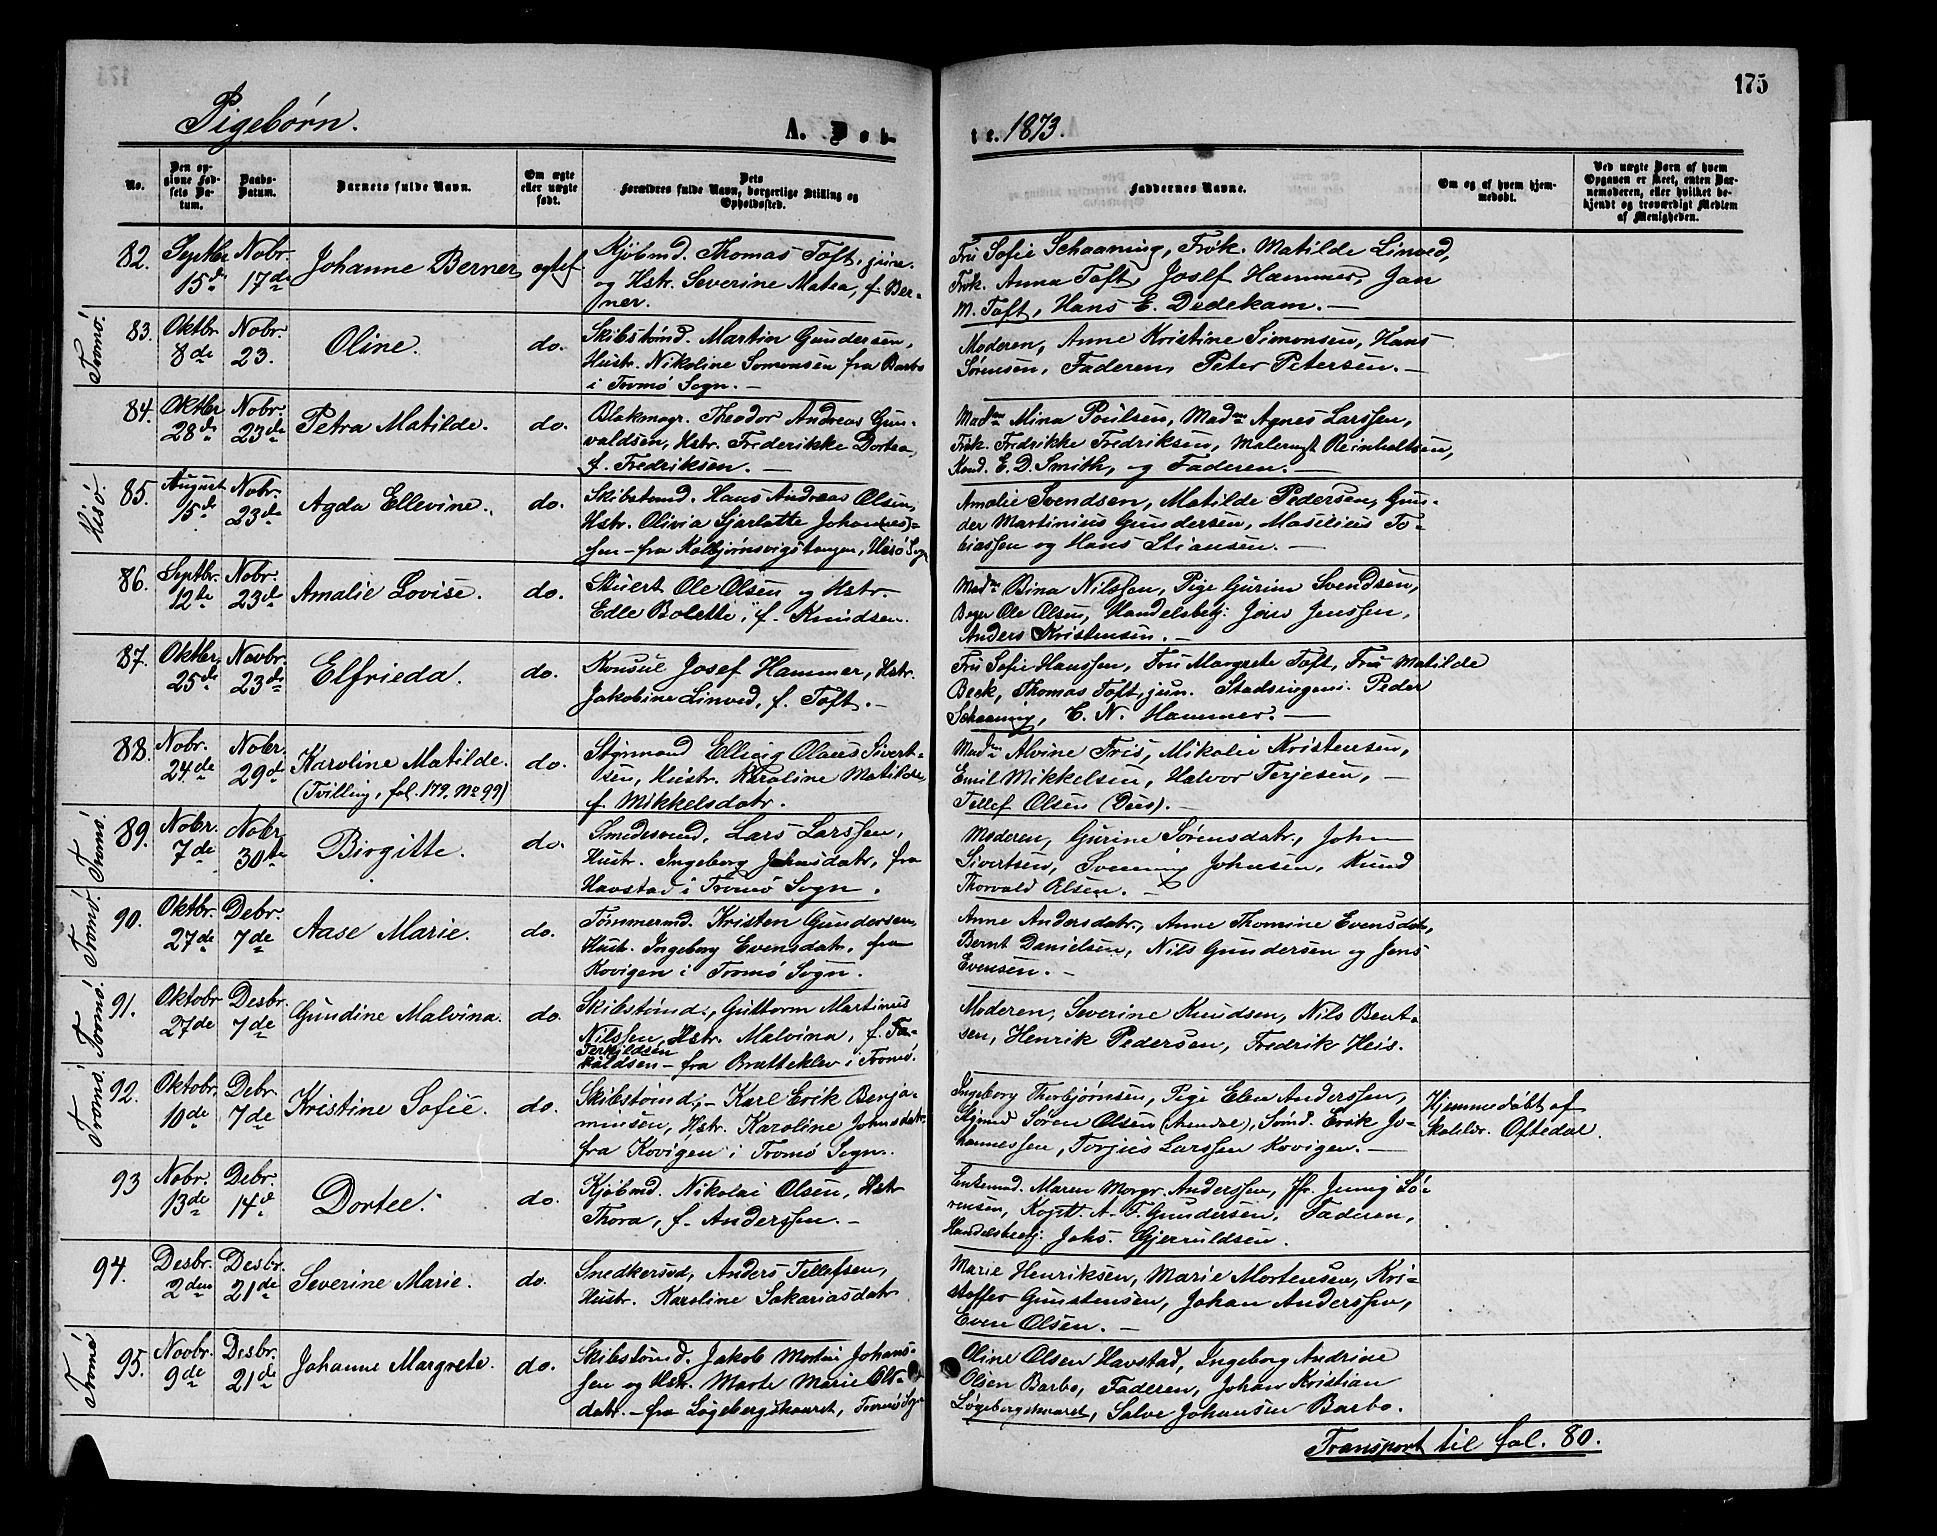 175
Pigebørn.
A. Døb-
te. 1873.
No.
Den op-
givne Fød-
sels Da-
tum.
Daabs-
Datum.
Barnets fulde Navn.
Om ægte
eller uægte
født.
Dets
Forældres fulde Navn, borgerlige Stilling og
Opholdssted.
Faddernes Navne.
Om og af hvem hjem-
medøbt.
Ved uægte Børn af hvem
Opgaven er skeet, enten Bar-
nemoderen, eller hvilket be-
kjendt og troværdigt Medlem
af Menigheden.
82. Septbr. 15de Nobr. 17de Johanne Berner ægtef.
Kjøbmd. Thomas Toft, juni.
og Hstr. Severine Matea, f. Ber-
ner.
Fru Sofie Schaaning, Frøk. Matilde Linved,
Frøk. Anna Toft, Josef Hammer, Jan
M. Toft, Hans E. Dedekam. —
Tromø.
83. Oktbr. 8de Nobr. 23. Oline. do.
Skibstømd. Martin Gundersen,
Hustr. Nikoline Somonsen fra Barbo
i Tromø Sogn. —
Moderen, Anne Kristine Simonsen, Hans
Sørensen, Faderen, Peter Petersen. —
84. Oktbr. 28de Nobr. 23de Petra Matilde. do.
Blokmagr. Theodor Andreas Gun-
valdsen, Hstr. Frederikke Dortea,
f. Fredriksen. —
Madm Mina Poulsen, Madm Agnes Larssen,
Frøk. Fredrikke Fredriksen, Malermst Reinholtsen,
Kond. E. D. Smith, og Faderen. —
Hisø.
85. August 15de Nobr. 23de Agda Ellevine. do.
Skibstømd. Hans Andreas Olsen,
Hstr. Olivia Sjarlotte Johan(nes)-
sen – fra Kolbjørnsvigstangen, Hisø Sogn
Amalie Svendsen, Matilde Pedersen, Gun-
der Martinius Gundersen, Maselius To-
biassen og Hans Stiansen. —
86. Septbr. 12te Nobr. 23de Amalie Lovise. do.
Stuert Ole Olsen og Hstr.
Edle Bolette, f. Knudsen.
Madm Bina Nilssen, Pige Gurine Svendsen,
Bager Ole Olsen, Handelsbetj. Jens Jenssen,
Anders Kristensen. —
87. Oktbr. 25de Novbr. 23de Elfrieda. do.
Konsul Josef Hammer, Hstr.
Jakobine Linved, f. Toft. —
Fru Sofie Hanssen, Fru Margrete Toft, Fru Matilde
Beck, Thomas Toft, jun. Stadsingeni. Peder
Schaaning, E. N. Hammer. —
88. Nobr. 24de Nobr. 29de Karoline Matilde.
(Tvilling, fol. 179, No 99) do.
Styrmand Ellevig Olaus Sivert-
sen, Hustr. Karoline Matilde
f. Mikkelsdatr.
Madm Alvine Friis, Mikalie Kristensen,
Emil Mikkelsen, Halvor Terjesen, —
Tellef Olsen (Dees). —
Tromø.
89. Nobr. 7de Nobr. 30te Birgitte. do.
Smedesvend, Lars Larssen,
Hustr. Ingeborg Johnsdatr, fra
Havstad i Tromø Sogn.
Moderen, Gurine Sørensdatr, John
Sivertsen, Svenning Johnsen, Knud
Thorvald Olsen. —
Tromø.
90. Oktbr. 27de Debr. 7de Aase Marie. do.
Tømmermd. Kristen Gundersen,
Hust. Ingeborg Evensdatr, fra
Kovigen i Tromø Sogn.
Anne Andersdatr, Anne Thomine Evensdatr,
Bernt Danielsen, Nils Gundersen og Jens
Evensen. —
Tromø.
91. Oktobr. 27de Desbr. 7de Gundine Malvina. do.
Skibstømd., Guttorm Martinus
Nilssen, Hstr. Malvina, f.
Terkildsen
– fra Bratteklev i Tromø.
Moderen, Severine Knudsen, Nils Bent-
sen, Henrik Pedersen, Fredrik Heis.
Tromø.
92. Oktobr. 10de Debr. 7de Kristine Sofie. do.
Skibstømd., – Karl Erik Benja-
minsen, Hstr. Karoline Johnsdatr.
fra Kovigen i Tromø Sogn.
Ingeborg Thorbjørnsen, Pige Elen Anderssen,
Stjrmd Søren Olsen (Arendal), Sømd. Erik Jo-
hannessen, Torjus Larssen Kovigen. —
Hjemmedøbt af
Skolelr. Oftedal.
93 Nobr. 13de Debr. 14de Dortee. do.
Kjøbmd. Nikolai Olsen, Hstr
Thora, f. Anderssen. —
Enkemd. Maren Morgr. Anderssen, Jfr. Jenny Sø-
rensen, Kaptl. A. T. Gundersen, Faderen,
Handelsbetj. Johs. Gjerruldsen.
94. Desbr. 2den Desbr. 21de Severine Marie. do.
Snedkersvd, Anders Tellefsen,
Hustr. Karoline Sakariasdatr
Marie Henriksen, Marie Mortensen, Kri-
stoffer Gunstensen, Johan Anderssen,
Even Olsen. —
Tromø
95. Novbr. 9de Desbr. 21de Johanne Margrete. do.
Skibstømd. Jakob Martin Johans-
sen og Hstr. Marte Marie Ols-
datr. – fra Løgebergskaaret, Tromø Sogn
Oline Olsen Havstad, Ingeborg Andrine
Olsen Barbo, Faderen, Johan Kristian
Løgebergskaaret, Salve Johansen Barbo.
Transport til fol. 80.